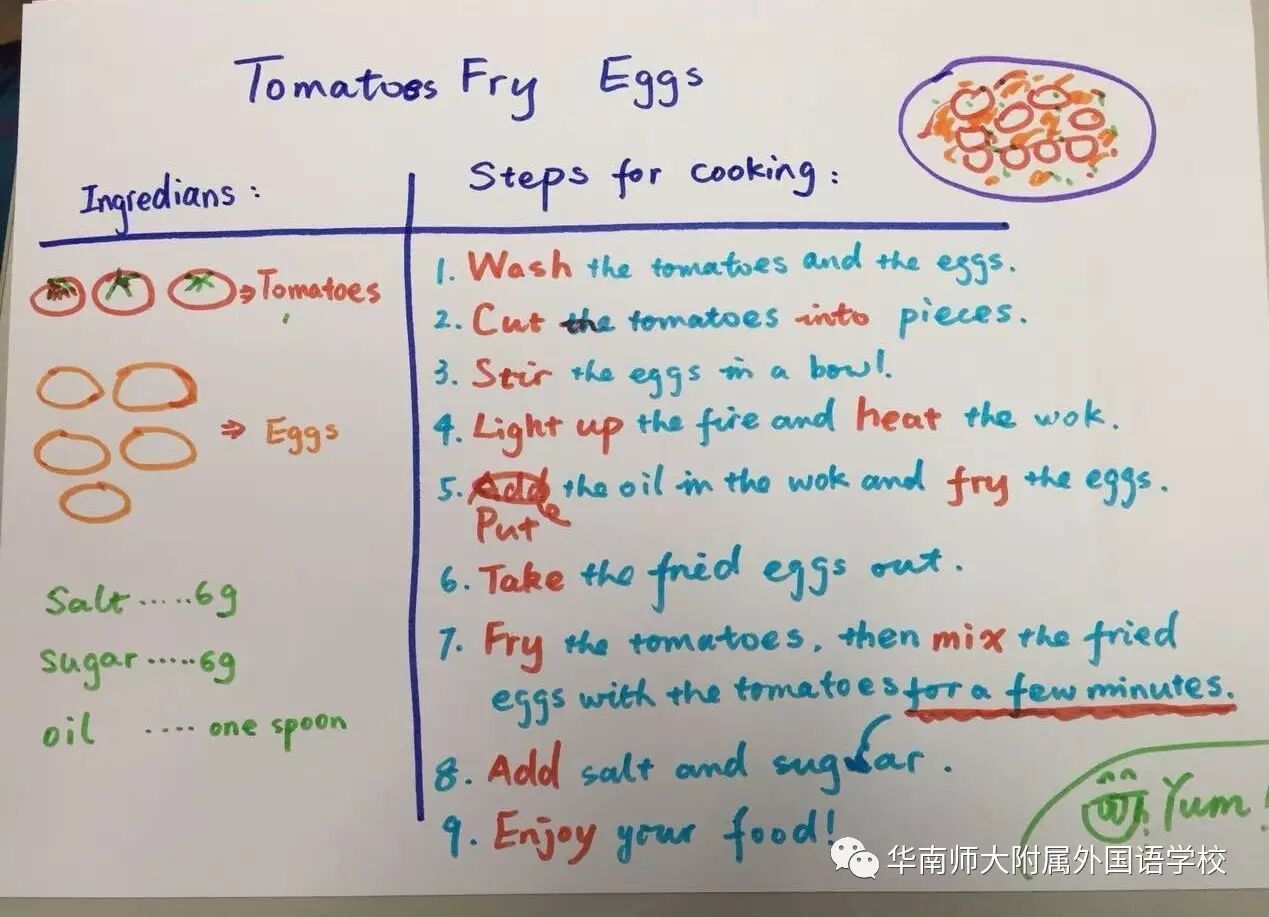 Tomatoes Fry Eggs
Ingredians :
⇒Tomatoes
⇒ Eggs
Salt ..... 6g
sugar ..... 6g
oil .... one spoon
Steps for cooking :
1. Wash the tomatoes and the eggs.
2. Cut the tomatoes into pieces.
3. Stir the eggs in a bowl.
4. Light up the fire and heat the wok.
5. Add the oil in the wok and fry the eggs.
Put
6. Take the fried eggs out.
7. Fry the tomatoes, then mix the fried
eggs with the tomatoes for a few minutes.
8. Add salt and sugar.
9. Enjoy your food!
Yum!
华南师大附属外国语学校